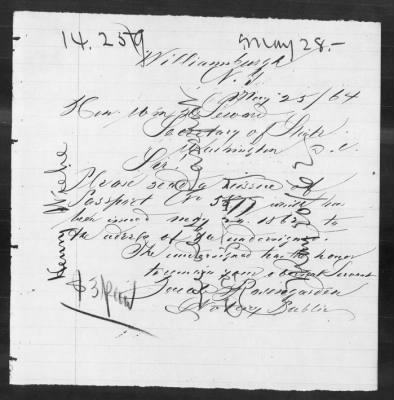 14.259
May 28.-
Williamsburgh
N. Y.
May 25/64
Hon. Wm H Seward
Secretary of State
Washington D. C.
Sir
Please send a reissue of
Passport No which has
been issued May 1863 to
the address of the undersigned.
The undersigned has the honor
to remain your obedient servant
Rosengarden
Notary Public
$3 paid
Henry